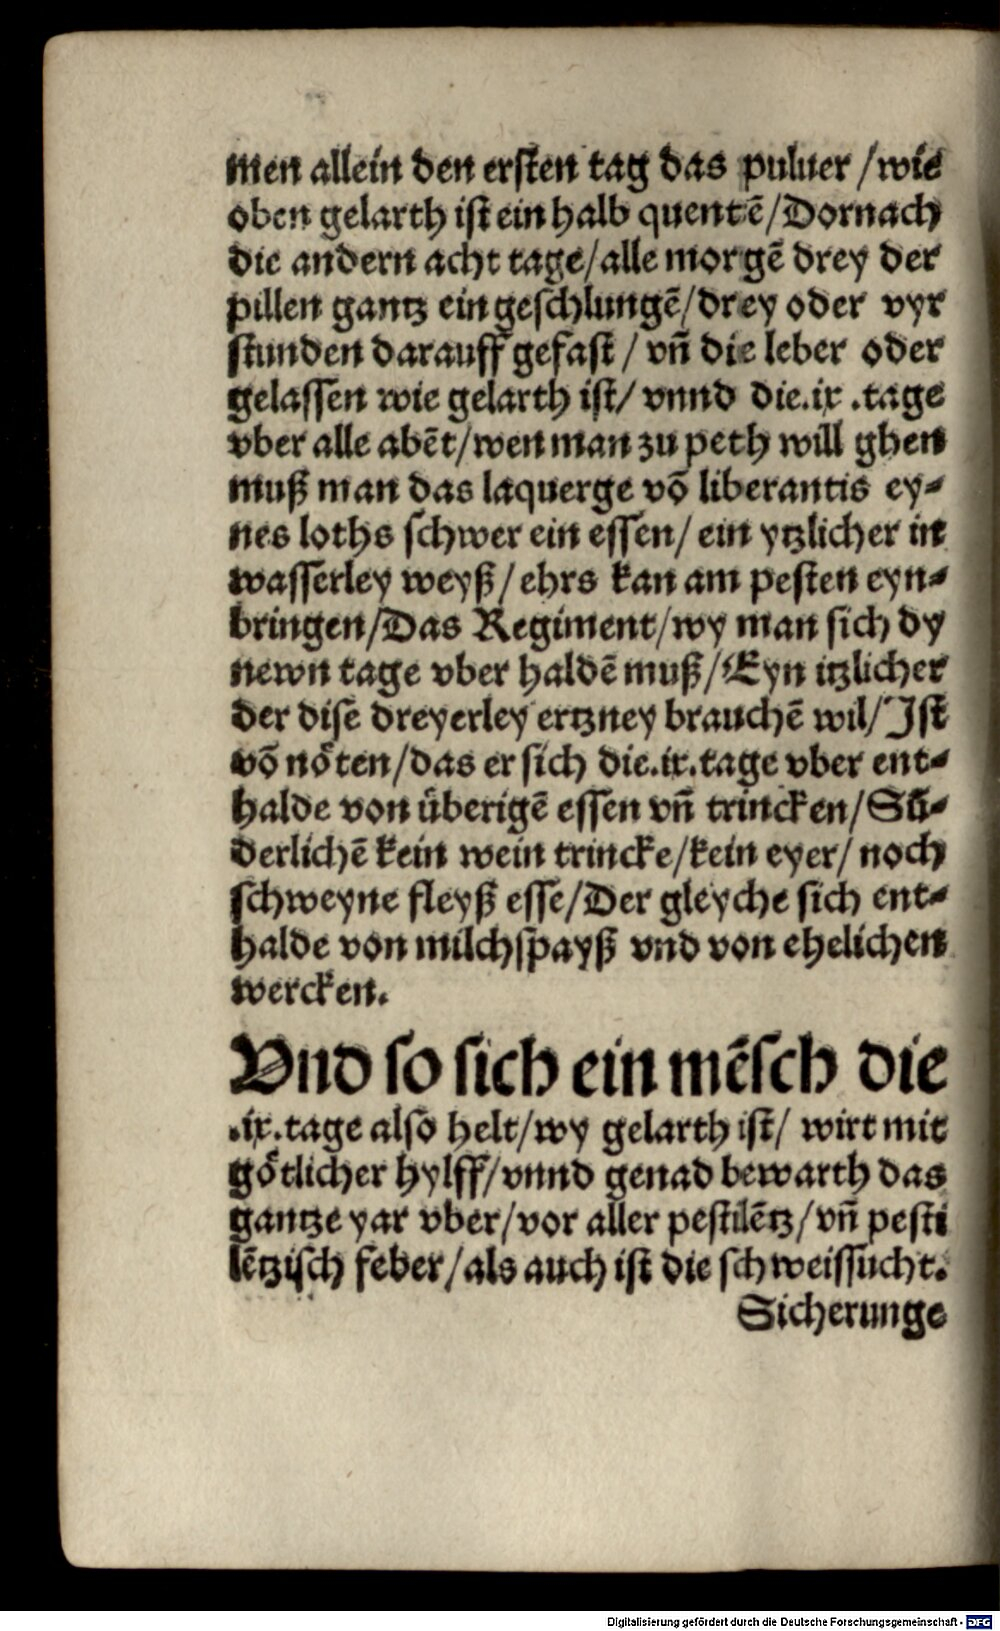 men allein den ersten tag das puluer /wie
oben gelarth ist ein halb quentē/Dornach
die andern acht tage/alle morgē drey der
pillen gantz ein geschlungē/drey oder vyr
stunden darauff gefast / vñ die leber oder
gelassen wie gelarth ist/ vnnd die.ix.tage
vber alle abēt/wen man zu peth will ghen
muß man das laquerge vō liberantis ey-
nes loths schwer ein essen/ ein ytzlicher in
wasserley weyß/ ehrs kan am pesten eyn-
bringen/Das Regiment/wy man sich dy
newn tage vber haldē muß/Eyn itzlicher
der dise dreyerley ertzney brauchē wil/Ist
vō nöten/das er sich die.ix.tage vber ent-
halde von überigē essen vñ trincken/Sū-
derlichē kein wein trincke/kein eyer/ noch
schweyne fleyß esse/Der gleyche sich ent-
halde von milchspayß vnd von ehelichen
wercken.
Vnd so sich ein mēsch die
.ix.tage also helt/wy gelarth ist/ wirt mit
götlicher hylff/vnnd genad bewarth das
gantze yar vber/vor aller pestilētz/vñ pesti
lētzisch feber/als auch ist die schweissucht.
Sicherunge
Digitalisierung gefördert durch die Deutsche Forschungsgemeinschaft - DFG